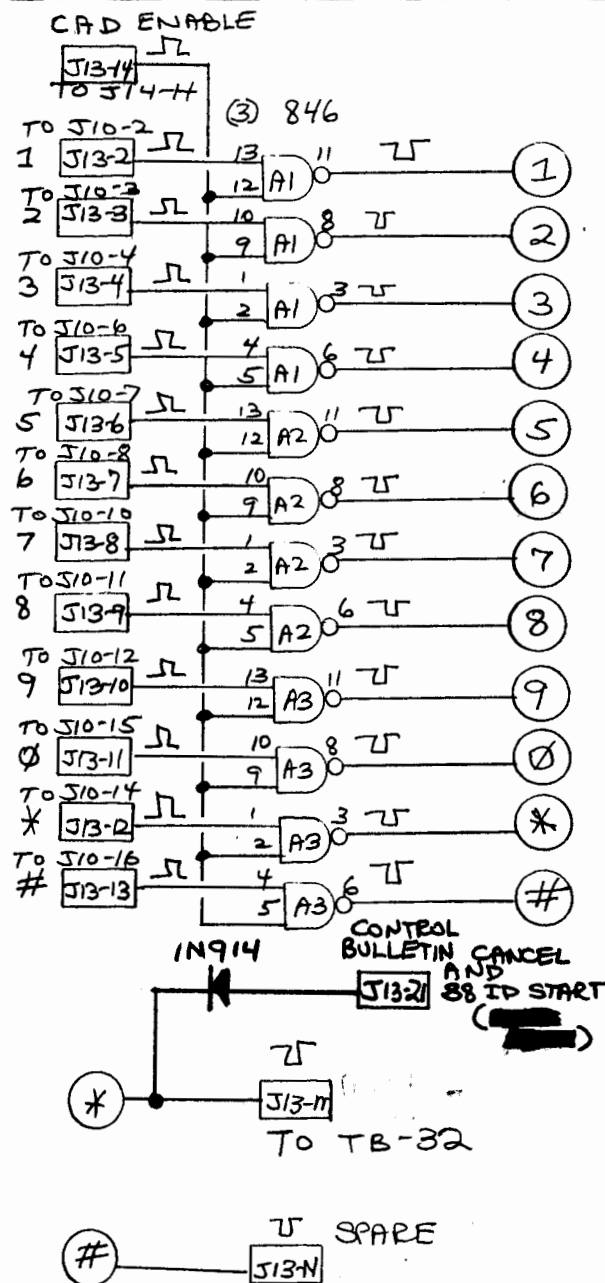 CAD ENABLE
J13-14
TO J14-H
(3) 846
TO J10-2
1 J13-2 13 12 A1 11 1
TO J10-3
2 J13-3 10 9 A1 8 2
TO J10-4
3 J13-4 1 2 A1 3 3
TO J10-6
4 J13-5 4 5 A1 6 4
TO J10-7
5 J13-6 13 12 A2 11 5
TO J10-8
6 J13-7 10 9 A2 8 6
TO J10-10
7 J13-8 1 2 A2 3 7
TO J10-11
8 J13-9 4 5 A2 6 8
TO J10-12
9 J13-10 13 12 A3 11 9
TO J10-15
Ø J13-11 10 9 A3 8 Ø
TO J10-14
* J13-12 1 2 A3 3 *
TO J10-16
# J13-13 4 5 A3 6 #
1N914
CONTROL
BULLETIN CANCEL
AND
J13-21 88 ID START
* J13-m
TO TB-32
SPARE
# J13-N